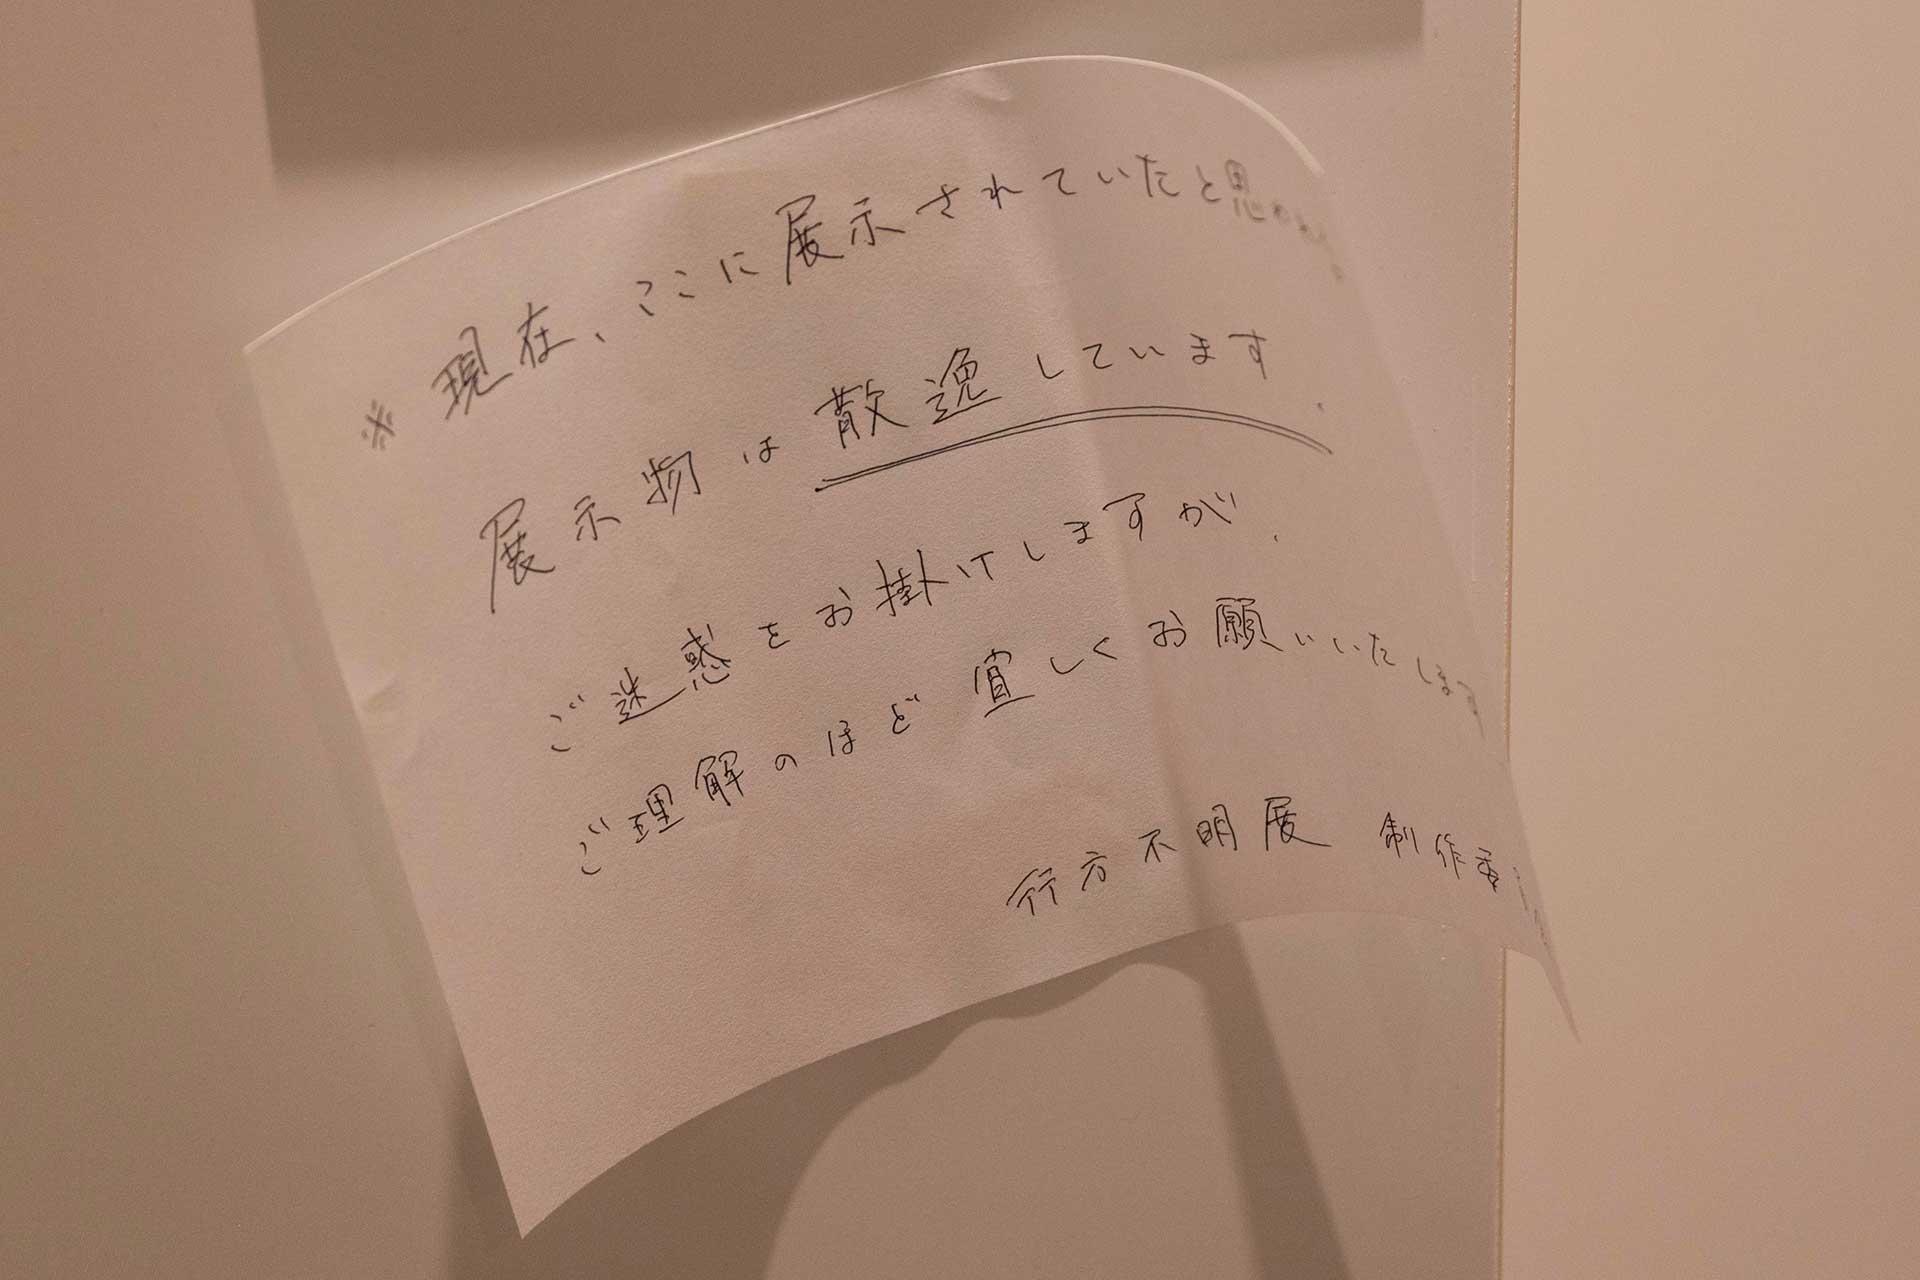 ※現在、ここに展示されていたと思われる
展示物は散逸しています.
ご迷惑をお掛けしますが、
ご理解のほど宜しくお願いいたします
行方不明展 制作委